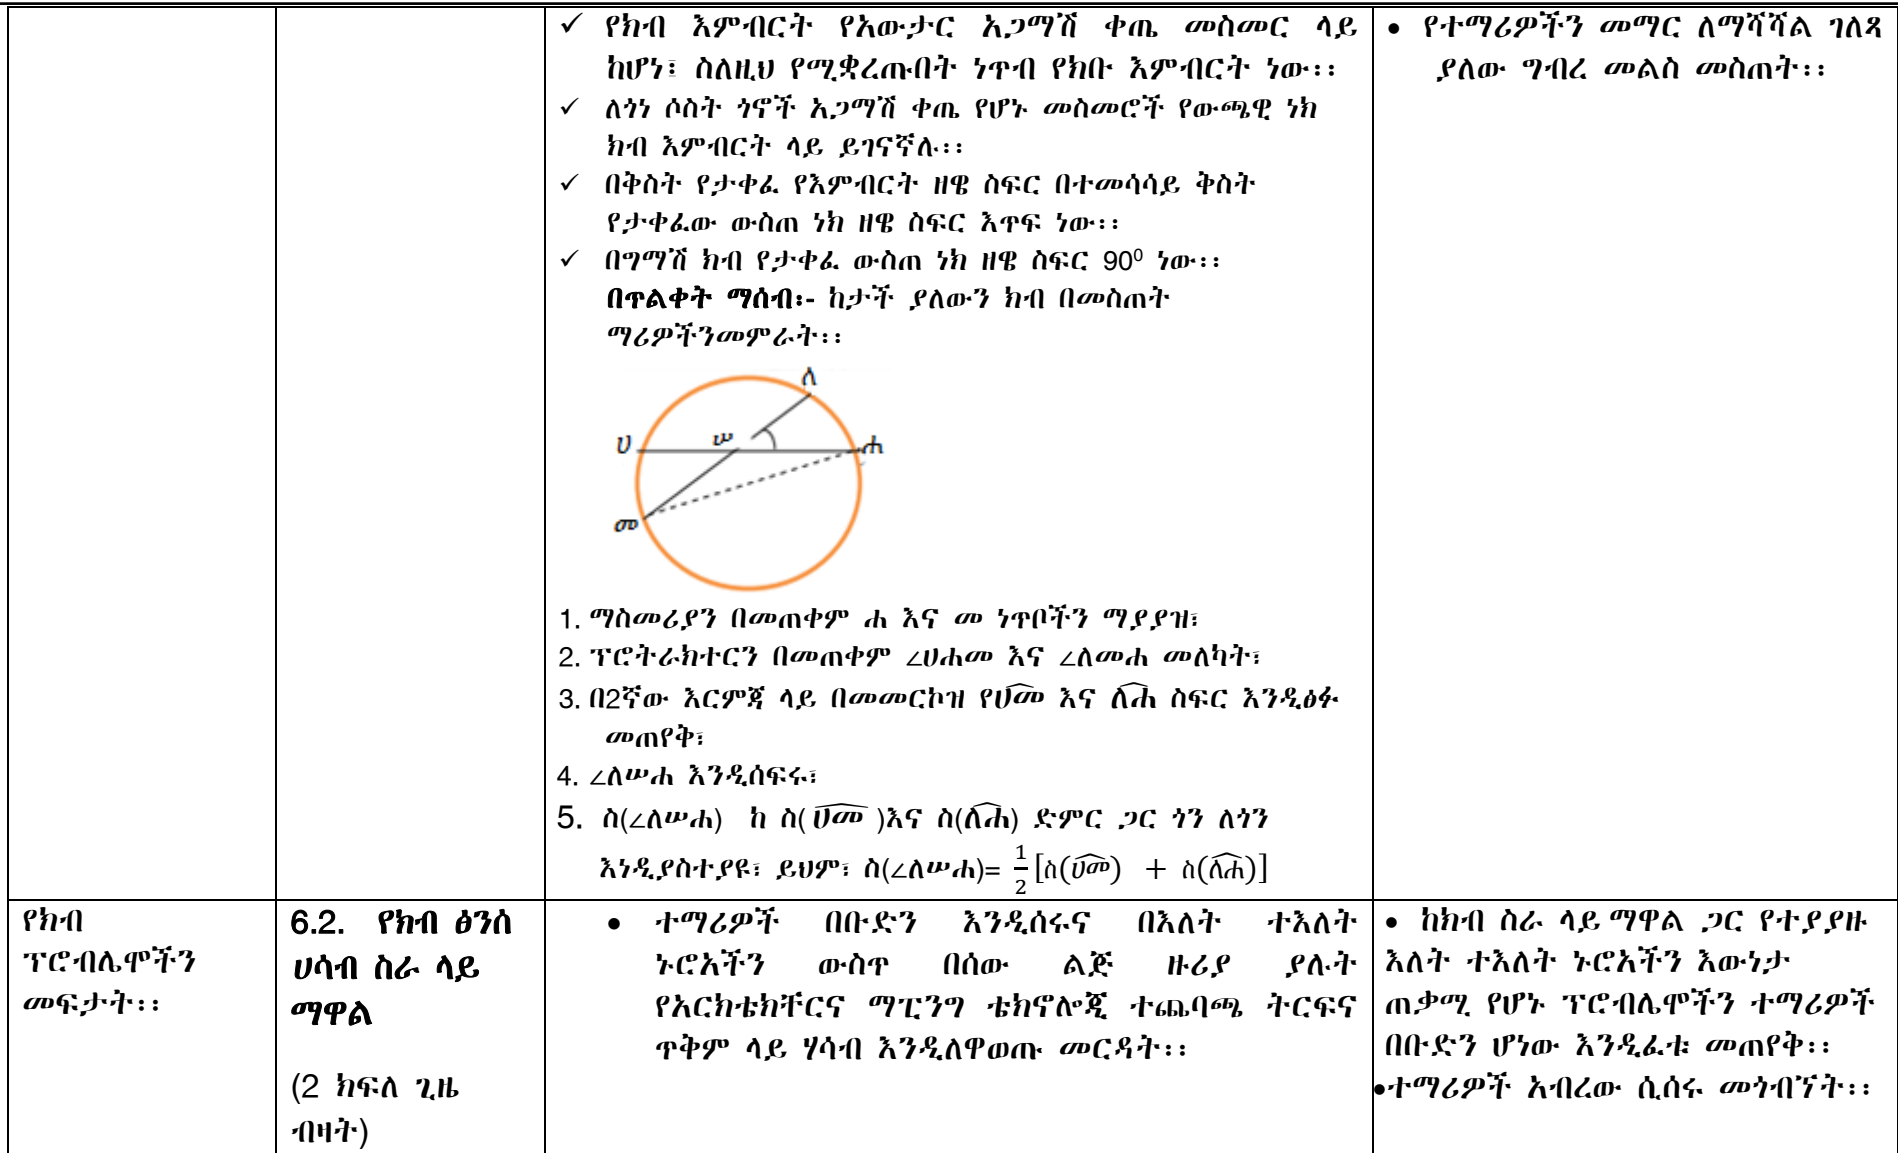 ✓ የክብ እምብርት የአውታር አጋማሽ ቀጤ መስመር ላይ
ከሆነ፤ ስለዚህ የሚቋረጡበት ነጥብ የክቡ እምብርት ነው፡፡
✓ ለጎነ ሶስት ጎኖች አጋማሽ ቀጤ የሆኑ መስመሮች የውጫዊ ነክ
ክብ እምብርት ላይ ይገናኛሉ፡፡
✓ በቅስት የታቀፈ የእምብርት ዘዌ ስፍር በተመሳሳይ ቅስት
የታቀፈው ውስጠ ነክ ዘዌ ስፍር እጥፍ ነው፡፡
✓ በግማሽ ክብ የታቀፈ ውስጠ ነክ ዘዌ ስፍር 90⁰ ነው፡፡
በጥልቀት ማሰብ፡- ከታች ያለውን ክብ በመስጠት
ማሪዎችንመምራት፡፡
ለ
ሀ ሠ ሐ
መ
1. ማስመሪያን በመጠቀም ሐ እና መ ነጥቦችን ማያያዝ፣
2. ፕሮትራክተርን በመጠቀም ∠ሀሐመ እና ∠ለመሐ መለካት፣
3. በ2ኛው እርምጃ ላይ በመመርኮዝ የሀ͡መ እና ለ͡ሐ ስፍር እንዲፅፉ
መጠየቅ፣
4. ∠ለሠሐ እንዲሰፍሩ፣
5. ስ(∠ለሠሐ) ከ ስ( ሀ͡መ )እና ስ(ለ͡ሐ) ድምር ጋር ጎን ለጎን
እነዲያስተያዩ፣ ይህም፣ ስ(∠ለሠሐ)= 1/2 [ስ(ሀ͡መ) + ስ(ለ͡ሐ)]
• የተማሪዎችን መማር ለማሻሻል ገለጻ
ያለው ግብረ መልስ መስጠት፡፡
የክብ
ፕሮብሌሞችን
መፍታት፡፡
6.2. የክብ ፅንሰ
ሀሳብ ስራ ላይ
ማዋል
(2 ክፍለ ጊዜ
ብዛት)
• ተማሪዎች በቡድን እንዲሰሩና በእለት ተእለት
ኑሮአችን ውስጥ በሰው ልጅ ዙሪያ ያሉት
የአርክቴክቸርና ማፒንግ ቴክኖሎጂ ተጨባጫ ትርፍና
ጥቅም ላይ ሃሳብ እንዲለዋወጡ መርዳት፡፡
• ከክብ ስራ ላይ ማዋል ጋር የተያያዙ
እለት ተእለት ኑሮአችን እውነታ
ጠቃሚ የሆኑ ፕሮብሌሞችን ተማሪዎች
በቡድን ሆነው እንዲፈቱ መጠየቅ፡፡
•ተማሪዎች አብረው ሲሰሩ መጎብኘት፡፡